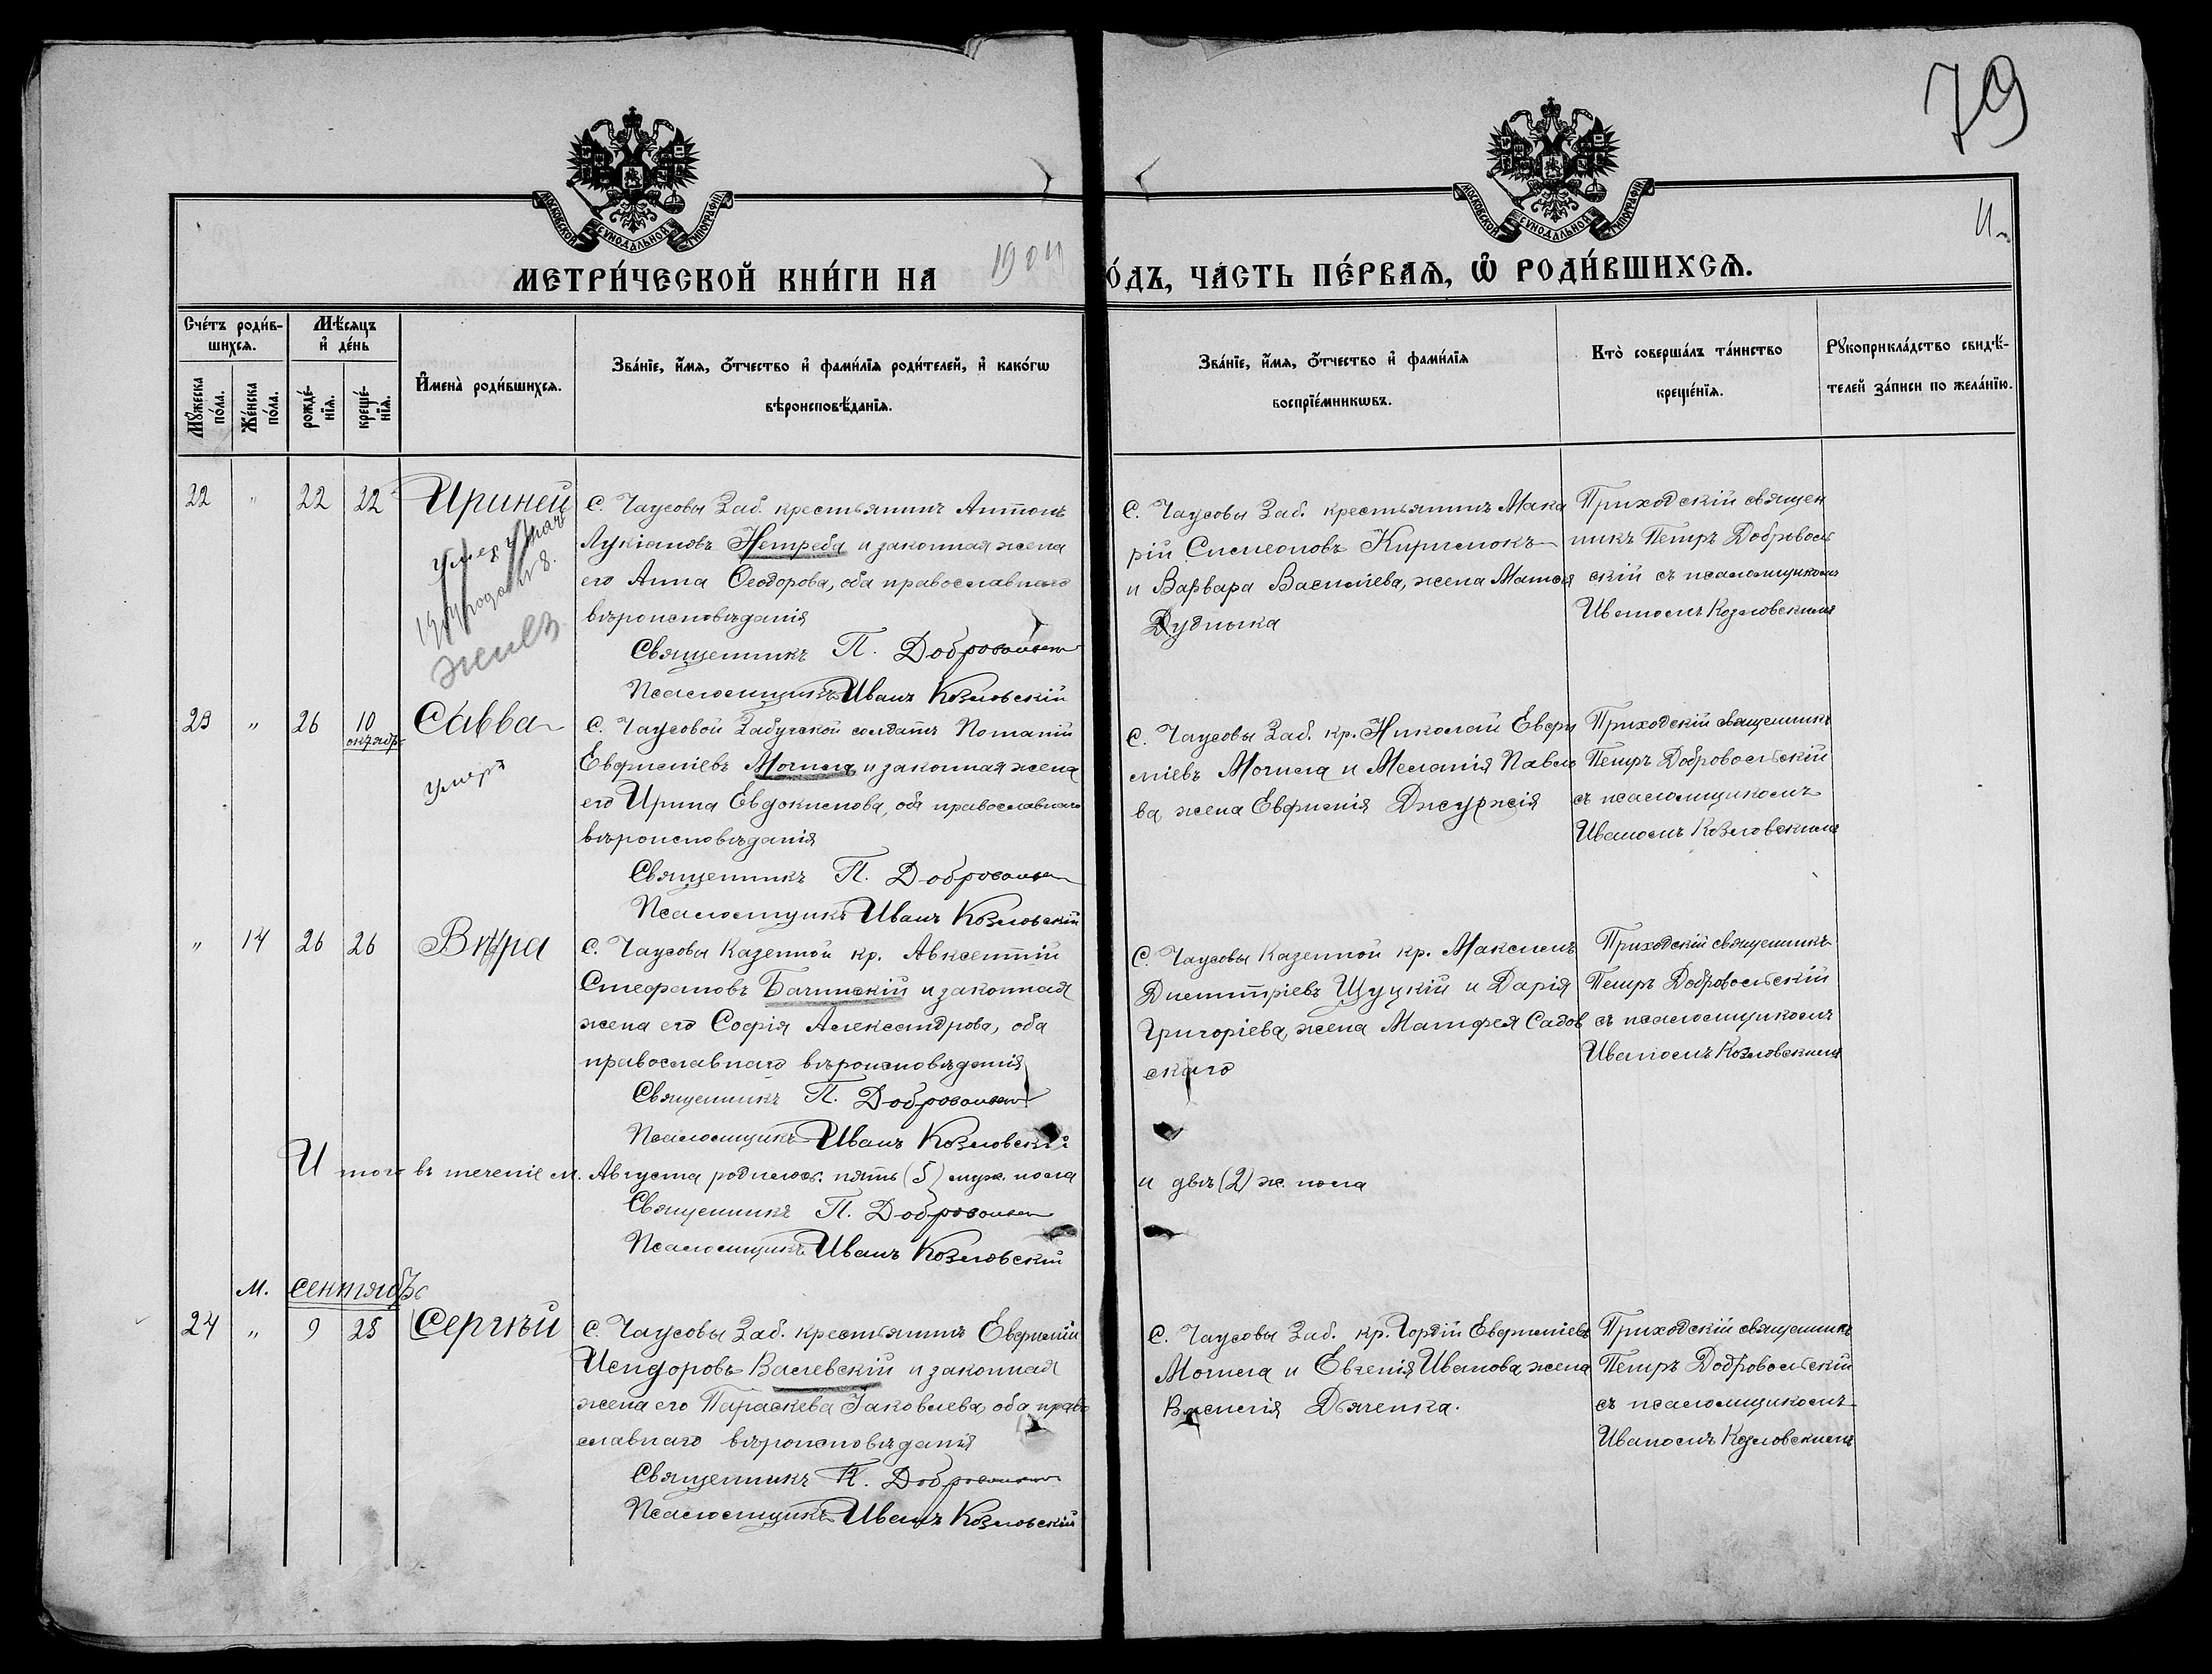 79
МОСКОВСКОЙ СѴНОДАЛЬНОЙ ТИПОГРАФІИ
МОСКОВСКОЙ СѴНОДАЛЬНОЙ ТИПОГРАФІИ
МЕТРИ́ЧЕСКОЙ КНИ́ГИ НА 1904
О́ДЪ, ЧА́СТЬ ПЕ́РВАѦ, Ѽ РОДИ́ВШИХСѦ.
Сче́тъ роди́в-
шихсѧ.
Мꙋ́жеска по́ла.
Же́нска по́ла.
Мѣ́сѧцъ и҆ де́нь
рожде́-нїѧ.
креще́-нїѧ.
И҆мена̀ роди́вшихсѧ.
Зва́нїе, и҆́мѧ, ѻ҆́тчество и҆ фами́лїѧ роди́телей, и҆ како́гѡ
вѣроисповѣ́данїѧ.
Зва́нїе, и҆́мѧ, ѻ҆́тчество и҆ фами́лїѧ
воспрїе́мникѡвъ.
Кто̀ соверша́лъ та́инство
креще́нїѧ.
Рꙋкоприкла́дство свидѣ́-
телей за́писи по жела́нїю.
22 " 22 22 Ириней
С. Чаусовы Заб. крестьянинъ Антонъ
Лукіановъ Нетреба и законная жена
его Анна Ѳеодорова, оба православнаго
вѣроисповѣданія
Священникъ П. Добровольск
Псаломщикъ Иванъ Козловскій
С. Чаусовы Заб. крестьянинъ Мака
рій Симеоновъ Кирилюкъ
и Варвара Василіева, жена Матѳея
Дудника
Приходскій священ
никъ Петръ Доброволь
скій съ псаломщикомъ
Иваномъ Козловскимъ
умер
жив
23 " 26 10 октября Савва
умеръ
С. Чаусовой Забугской солдатъ Потапій
Евфиміевъ Могила и законная жена
его Ирина Евдокимова, оба православнаго
вѣроисповѣданія
Священникъ П. Добровольск
Псаломщикъ Иванъ Козловскій
С. Чаусовы Заб. кр. Николай Евфи
міевъ Могила и Меланія Павло
ва, жена Евфимія Джуржія
Приходскій священникъ
Петръ Добровольскій
съ псаломщикомъ
Иваномъ Козловскимъ
" 14 26 26 Вѣра
С. Чаусовы Казенной кр. Авксентій
Стефановъ Бачинскій и законная
жена его Софія Александрова, оба
православнаго вѣроисповѣданія
Священникъ П. Добровольск
Псаломщикъ Иванъ Козловскій
С. Чаусовы Казенной кр. Максимъ
Димитріевъ Щуцкій и Дарія
Григоріева, жена Матфея Садов
скаго
Приходскій священникъ
Петръ Добровольскій
съ псаломщикомъ
Иваномъ Козловскимъ
Итого въ теченіе м. Августа родилось: пять (5) муж. пола
и двѣ (2) ж. пола
Священникъ П. Добровольск
Псаломщикъ Иванъ Козловскій
М. сентябрь
24 " 9 25 Сергѣй
С. Чаусовы Заб. крестьянинъ Евфимій
Исидоровъ Василевскій и законная
жена его Параскева Іаковлева, оба право
славнаго вѣроисповѣданія
Священникъ П. Добровольск
Псаломщикъ Иванъ Козловскій
С. Чаусовы Заб. кр. Гордій Евфиміевъ
Могила и Евгенія Иванова, жена
Василія Дяченка.
Приходскій священникъ
Петръ Добровольскій
съ псаломщикомъ
Иваномъ Козловскимъ